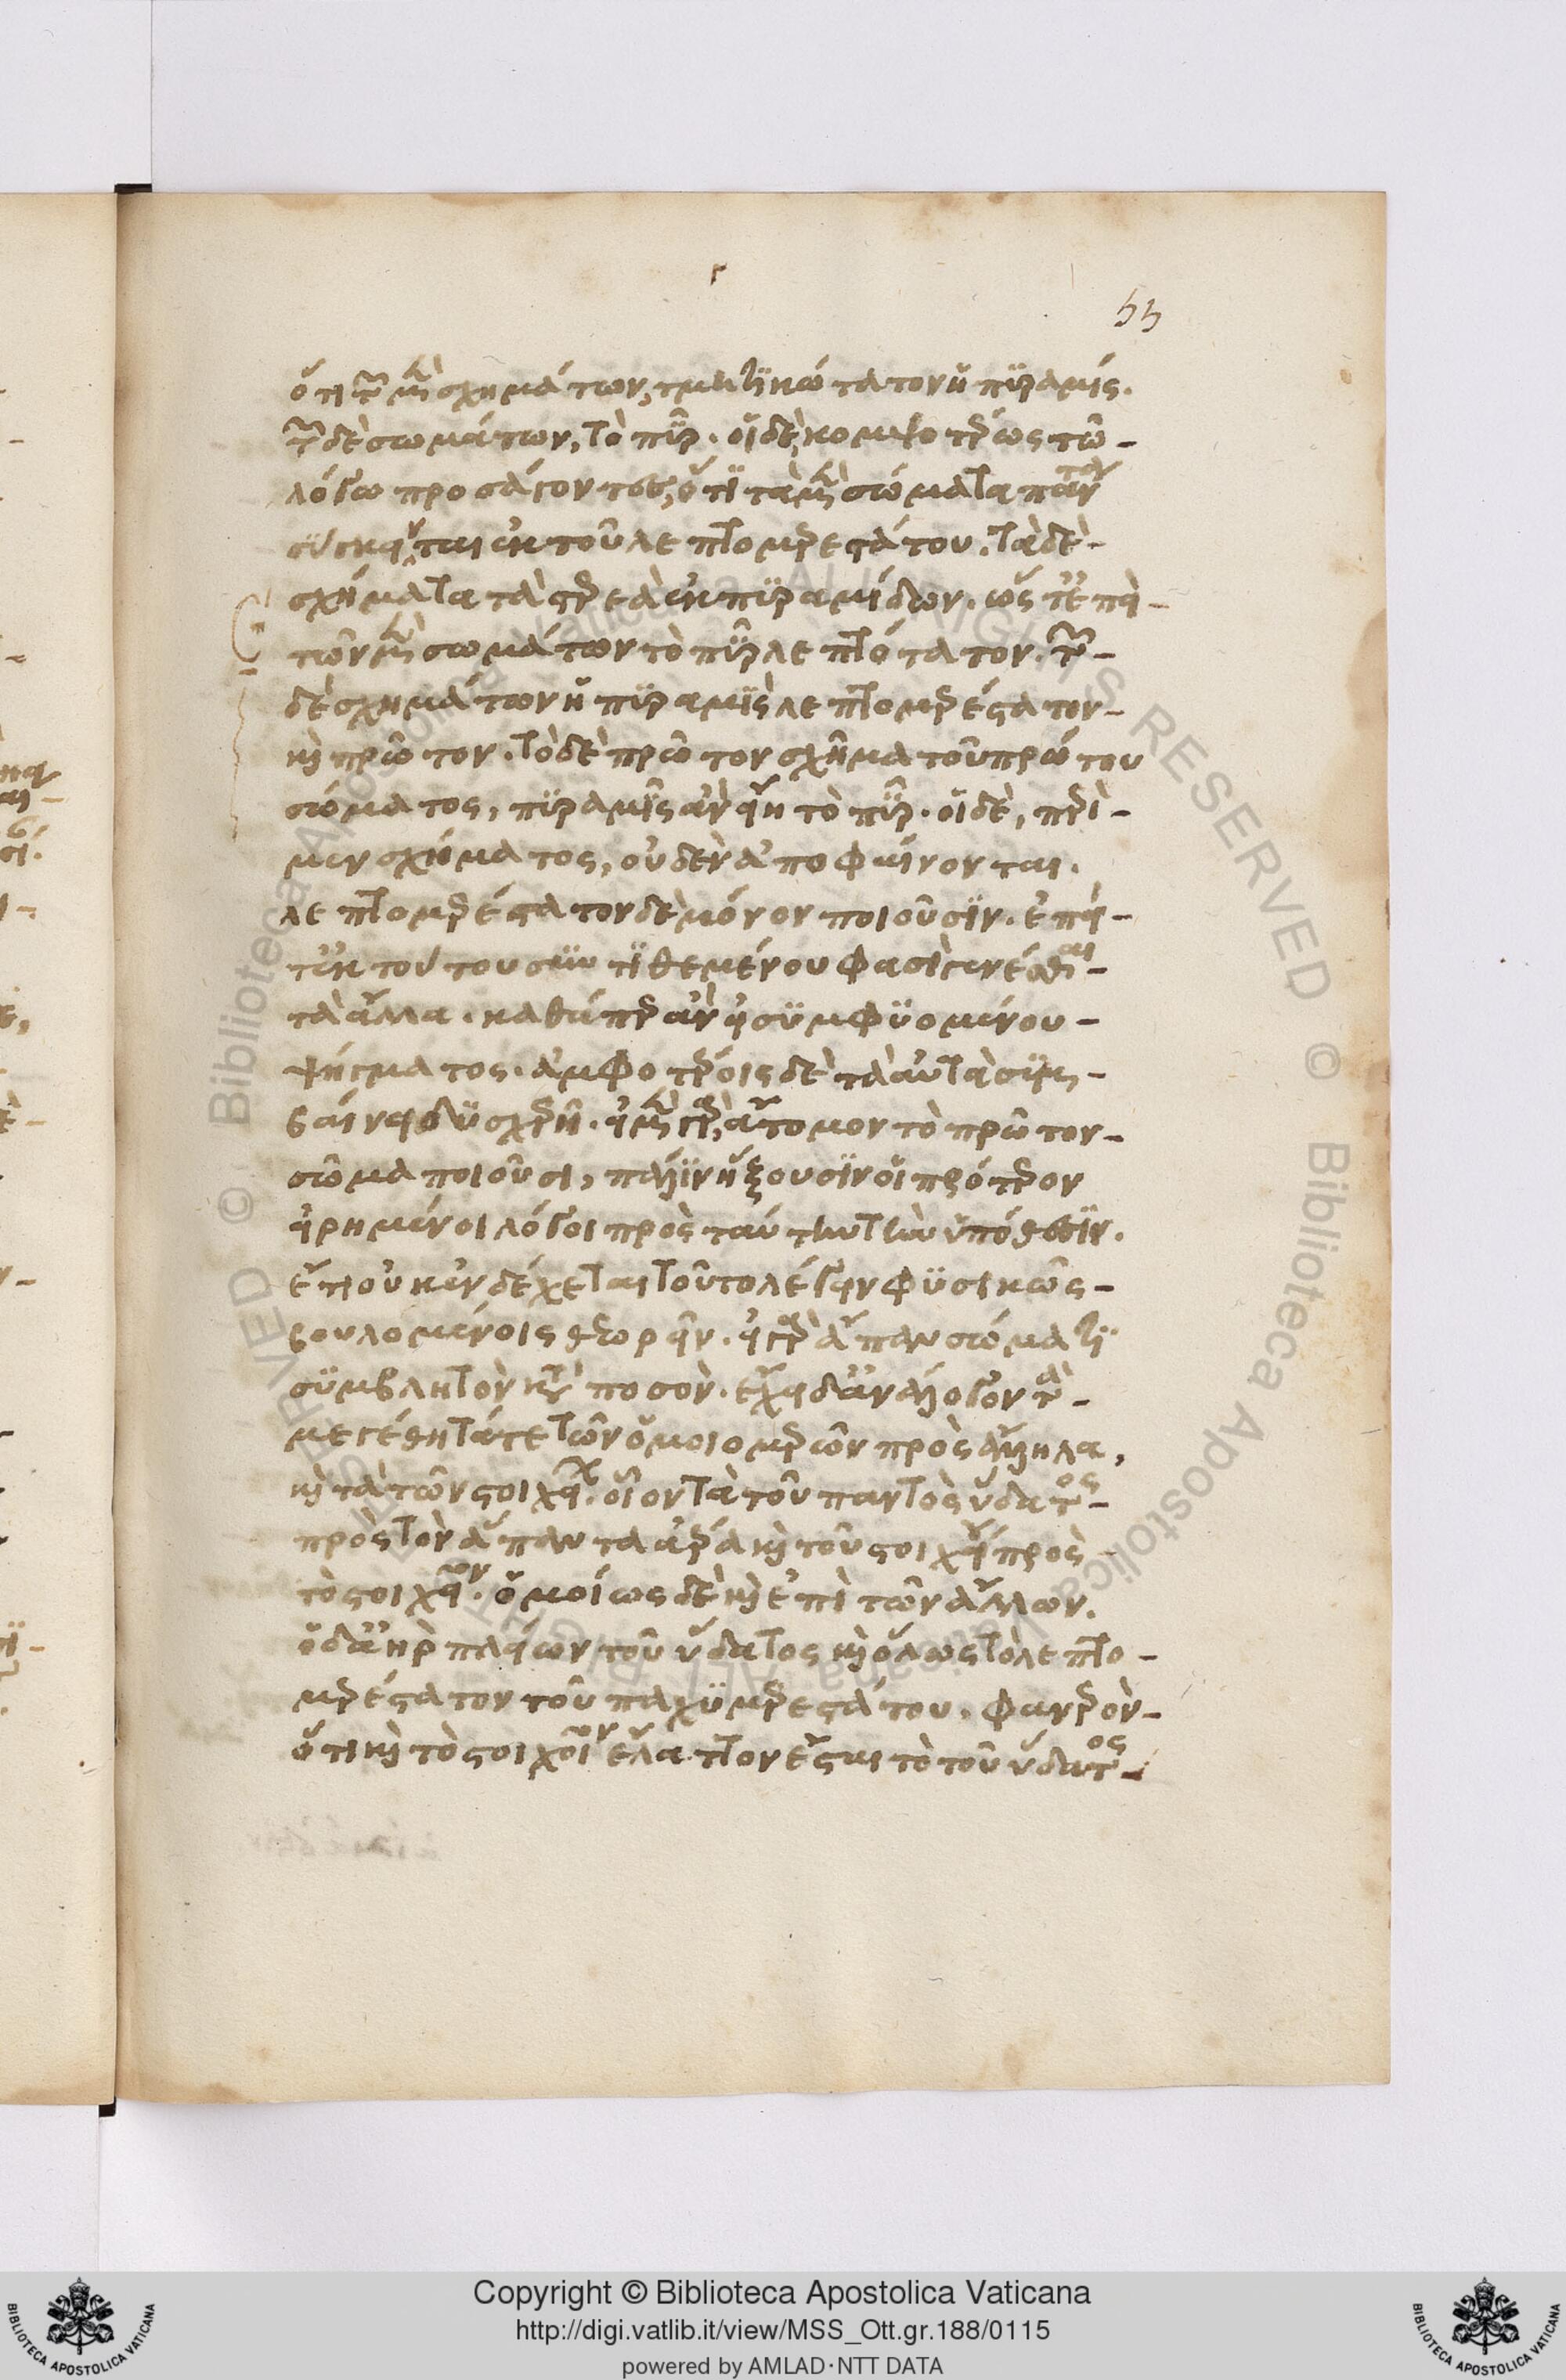 γ
55
ὅτι τῶν μὲν σχημάτων, τμητικώτατον ἡ πυραμίς.
τῶν δὲ σωμάτων, τὸ πῦρ. οἱ δὲ, κομψοτέρως τῶ
λόγω προσάγοντες, ὅτι τὰ μὲν σώματα πάντα
σύγκειται ἐκ τοῦ λεπτομερεστάτου. τὰ δὲ
σχήματα τὰ στερεὰ ἐκ πυραμίδων. ὥς τ' ἐπεὶ
τῶν μὲν σωμάτων τὸ πῦρ λεπτότατον. τῶν
δὲ σχημάτων ἡ πυραμὶς λεπτομερέστατον
καὶ πρῶτον. τὸ δὲ πρῶτον σχῆμα τοῦ πρώτου
σώματος, πυραμὶς ἂν εἴη τὸ πῦρ. οἱ δὲ, περὶ
μεν σχήματος, οὐδὲν ἀποφαίνονται.
λεπτομερέστατον δὲ μόνον ποιοῦσιν. ἔπει
τ' ἐκ τούτου συντιθεμένου φασὶ γενέσθαι
τὰ ἄλλα. καθάπερ ἂν εἰ συμφυομένου
ψήγματος. ἀμφοτέροις δὲ τὰ αὐτὰ συμ
βαίνει δυσχερῆ. εἰ μὲν γὰρ, ἄτομον τὸ πρῶτον
σῶμα ποιοῦσι, πάλιν ἥξουσιν οἱ πρότερον
εἰρημένοι λόγοι πρὸς ταύτην τὴν ὑπόθεσιν.
ἔτι οὐκ ἐνδέχεται τοῦτο λέγειν φυσικῶς
βουλομένοις θεωρεῖν. εἰ γὰρ ἅπαν σῶμα τι
συμβλητὸν κατὰ ποσὸν. ἔχει δ' ἀνάλογον τὰ
μεγέθη τά τε τῶν ὁμοιομερῶν πρὸς ἄλληλα,
καὶ τὰ τῶν στοιχείων. οἷον τὰ τοῦ παντὸς ὕδατος
πρὸς τὸν ἅπαντα ἀέρα καὶ τοῦ στοιχείου πρὸς
τὸ στοιχεῖον. ὁμοίως δὲ καὶ ἐπὶ τῶν ἄλλων.
ὁ δ' ἀὴρ πλείων τοῦ ὕδατος καὶ ὅλως τὸ λεπτο
μερέστατον τοῦ παχυμερεστάτου. φανερὸν
ὅτι καὶ τὸ στοιχεῖον ἔλαττον ἔσται τὸ τοῦ ὕδατος
Copyright © Biblioteca Apostolica Vaticana
http://digi.vatlib.it/view/MSS_Ott.gr.188/0115
powered by AMLAD·NTT DATA
BIBLIOTECA APOSTOLICA VATICANA
BIBLIOTECA APOSTOLICA VATICANA